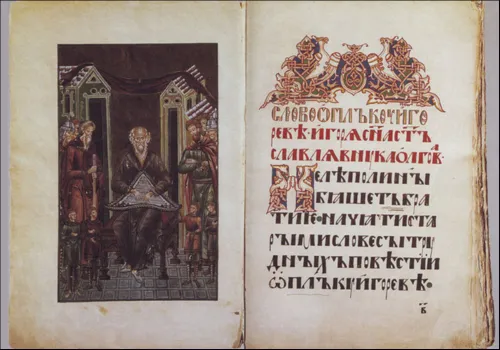 СЛОВОѠПЛЪКꙋИГО
РЕВѢ·ИГОРѦСНАСТЪ
СЛАВЛѦВНꙋКАОЛГОВ·
НЕЛѢПОЛИНЫ
БꙖШЕТЪБРА
ТИЕ·НАЧꙖТИСТА
РЫМИСЛОВЕСЫТРꙋ
ДНЫХЪПОВѢСТІЙ
ѠПЛЪКꙋИГОРЕВѢ·
В